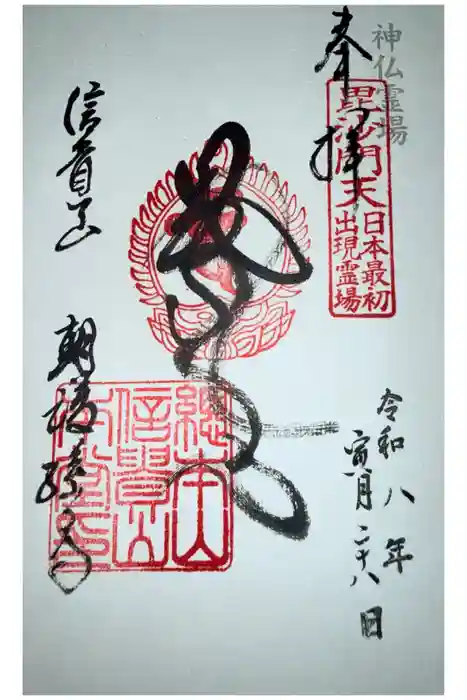 神仏霊場
奉拝
毘沙門天
日本最初
出現霊場
令和八年
寅月二十八日
信貴山
朝護孫子寺
總本山
信貴山
本堂印